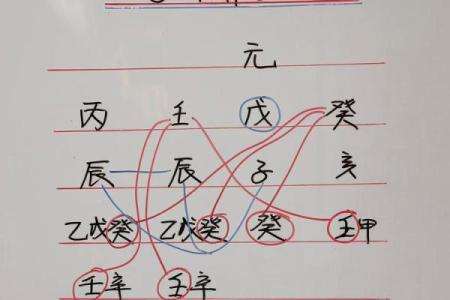 元
丙 壬 戊 癸
辰 辰 子 亥
乙戊癸 乙戊癸 癸 壬甲
壬辛 壬辛